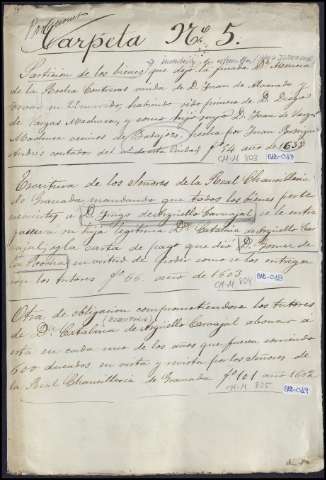 Carpeta Nº 5.
Particion de los bienes que dejó la finada Dª
de la Rocha Contreras viuda de D. Juan de Alvarado y
habiendo sido primero de D. Diego
de Vargas Machuca, y como hijo suyo D. Juan de Vargas
Machuca vecinos de Badajoz, hecha por Juan Rodriguez
Andres contador del de esta Ciudad fº 74 año de 1632
CM.M 803 BIB-CM9
Escritura de los Señores de la Real Chancilleria
de Granada mandando que todos los bienes perte-
necientes a D. Iñigo de Arguello Carvajal se le entre-
gasen a su hija legitima Dª Catalina de Arguello Car-
vajal, y la carta de pago que dió D. Gomez de
la Rocha en virtud de poder como se los entrega-
ron los tutores fº 66 año de 1603
CM.M 804
Otra de obligacion comprometiendose los tutores
de Dª Catalina de Arguello Carvajal abonar a
esta en cada uno de los años que fuesen
600 ducados en vista y revista por los Señores de
la Real Chancilleria de Granada fº 101 año 1602
CM.M 805